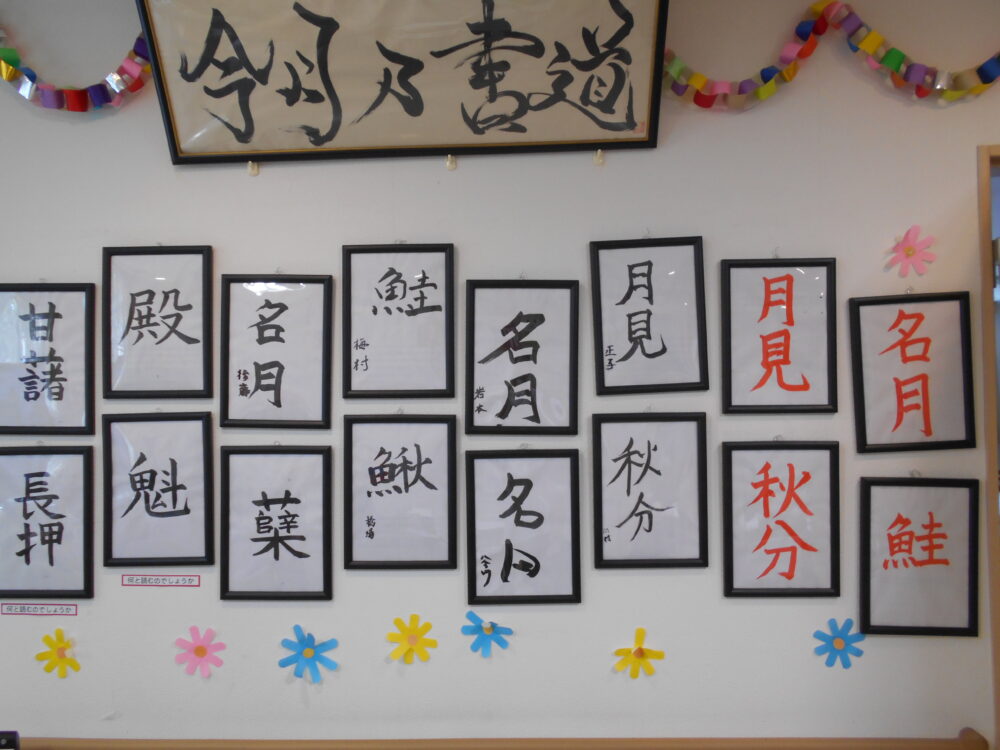 今月乃書道
甘藷
殿
名月
後藤
鮭
梅村
名月
岩本
月見
正子
月見
名月
長押
魁
蘖
鰍
名月
秋分
秋分
鮭
何と読むのでしょうか
何と読むのでしょうか